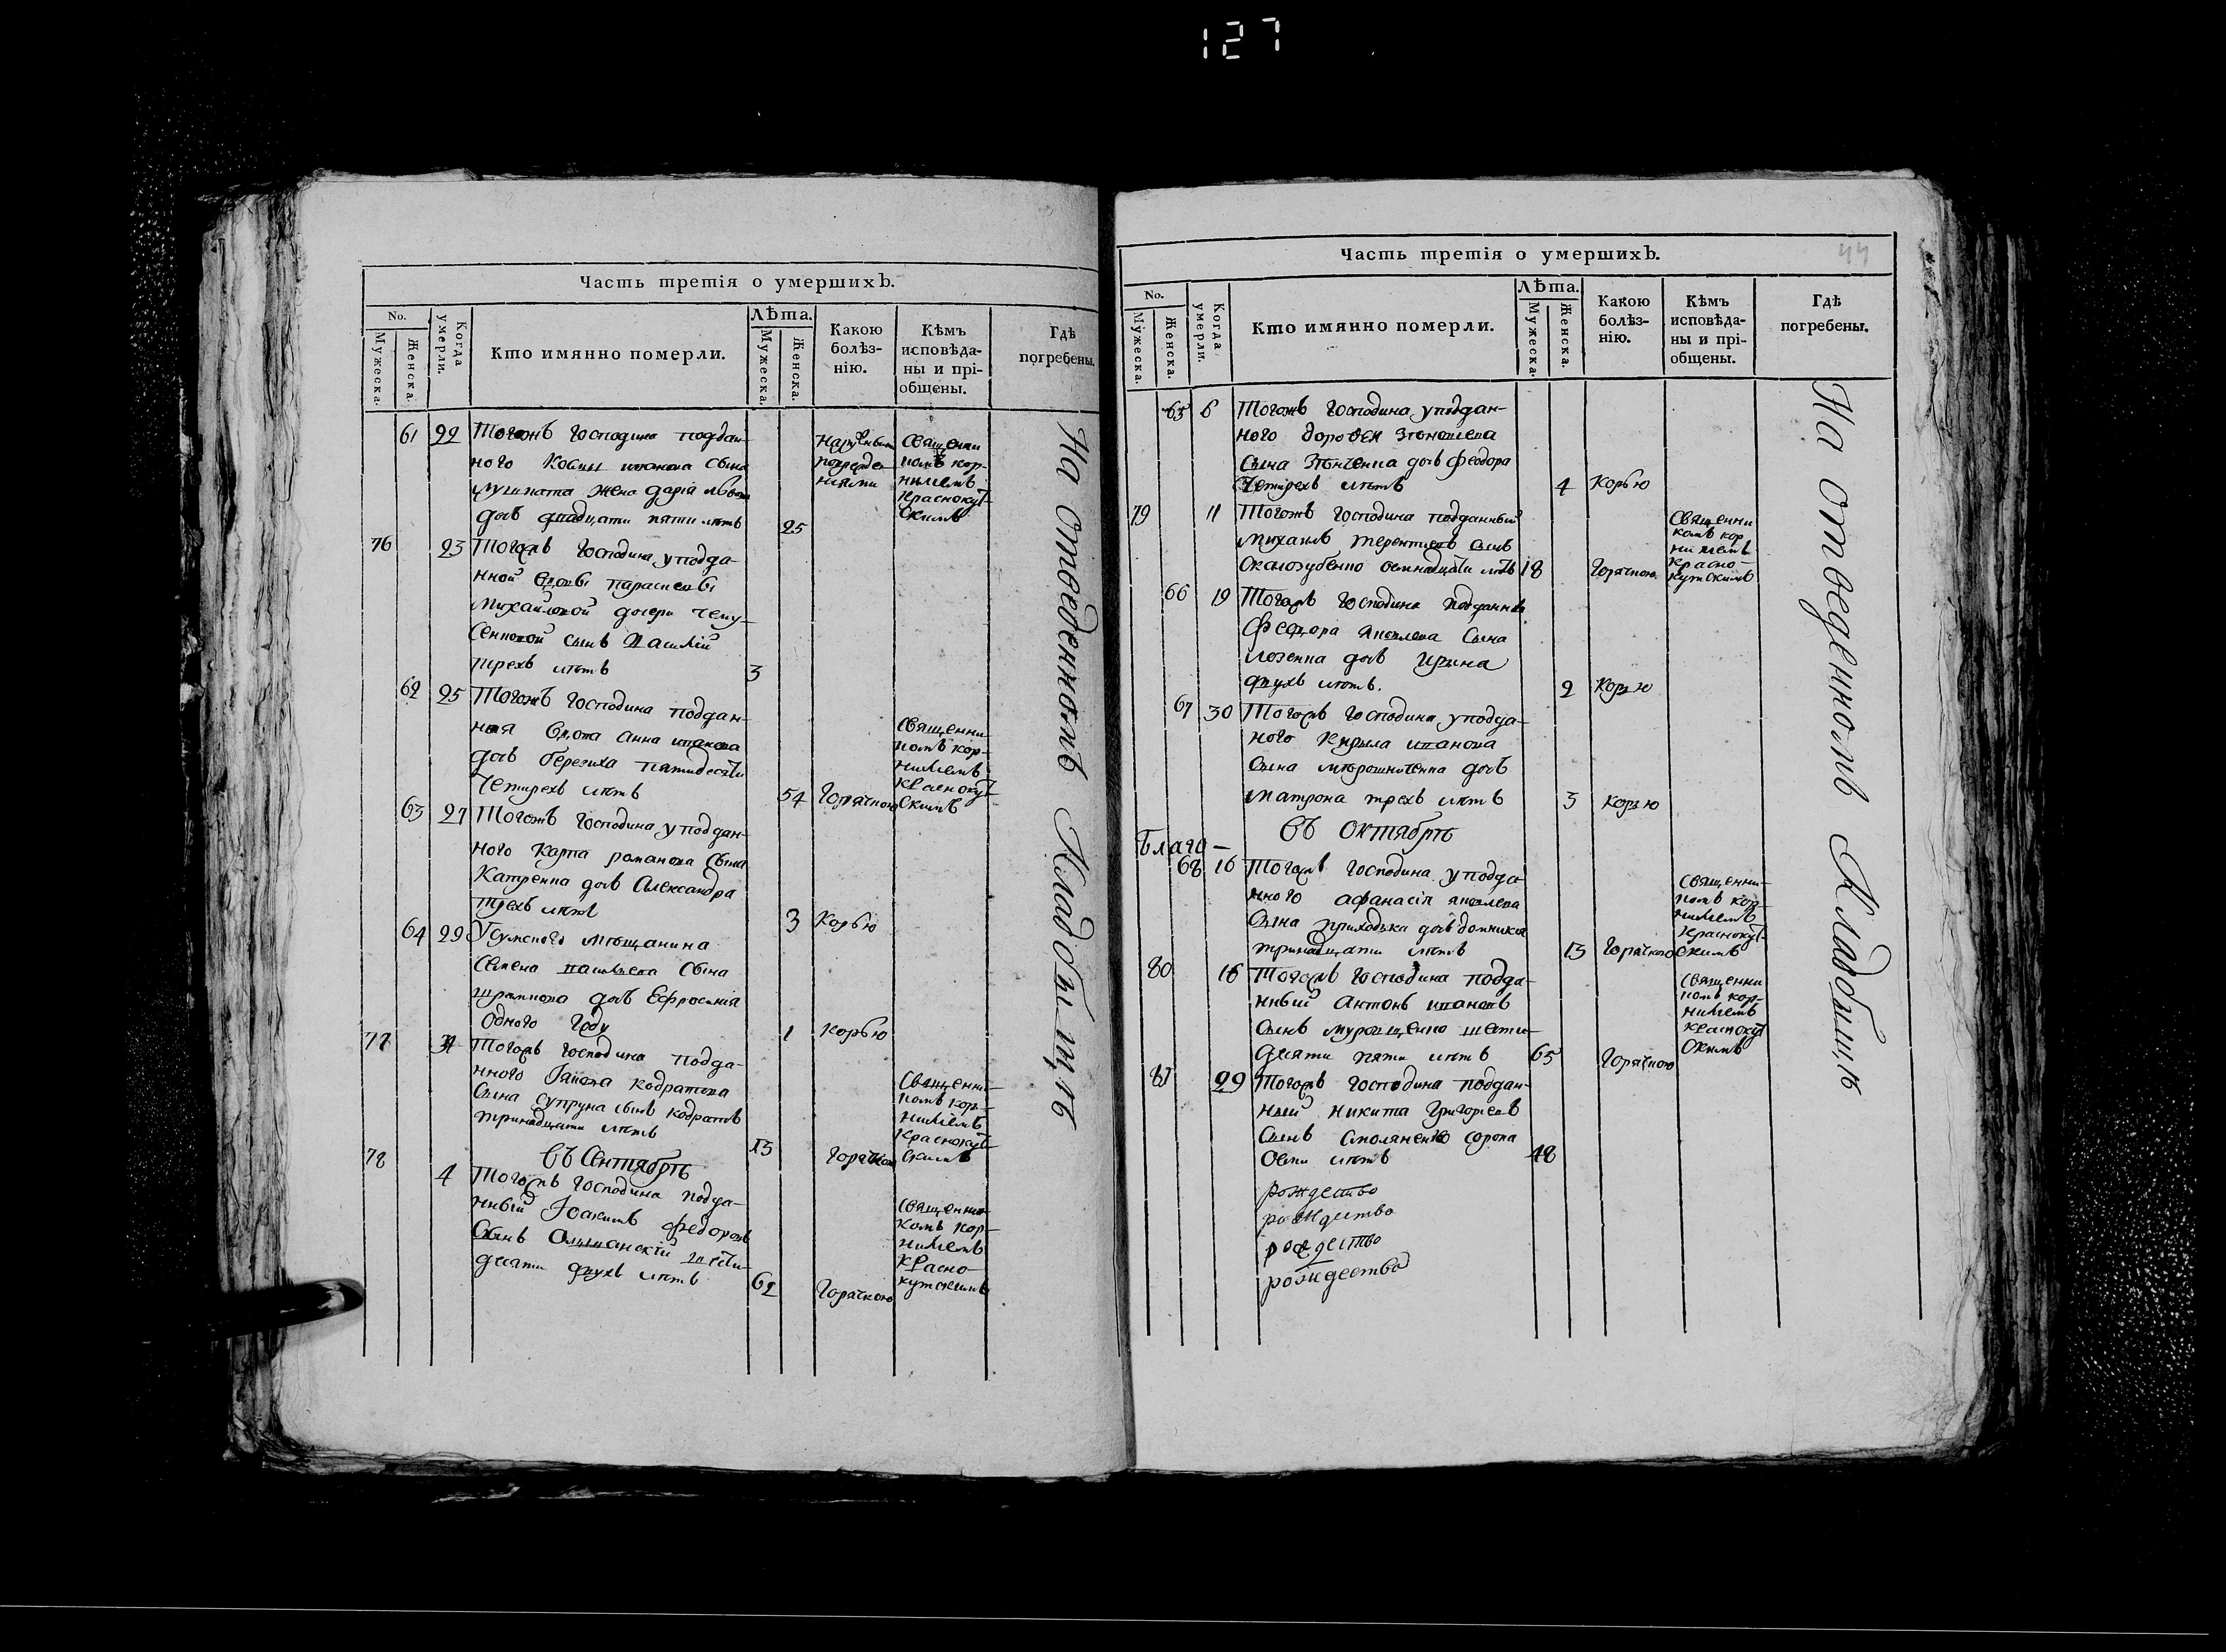 127
Часть третія о умершихъ.
No.
Мужеска.
Женска.
Когда умерли.
Кто имянно померли.
Лѣта.
Мужеска.
Женска.
Какою болѣз-
нію.
Кѣмъ
исповѣда-
ны и прі-
общены.
Гдѣ
погребены.
61 22 Тогожъ Господина поддан-
ного Космы иванова сына
жена дарія
дочь двадцати пяти лѣтъ 25
Священни
комъ кор-
ниліемъ
Краснокут-
скимъ
76 23 Тогожъ Господина у подда-
нной вдовы параскевы
Михайловой дочери
сынъ Василій
трехъ лѣтъ 3
62 25 Тогожъ Господина поддан-
ная вдова Анна иванова
дочь березиха пятидесяти
Четирехъ лѣтъ 54 Горячкою
Священни
комъ кор-
ниліемъ
Краснокут-
скимъ
63 27 Тогожъ Господина у поддан-
ного Карпа романова сына
Катренка дочь Александра
трехъ лѣтъ 3 Корью
64 29 мѣщанина
Семена васильева сына
дочь Ефросинія
одного году 1 Корью
77 31 Тогожъ Господина подда-
нного кодратова
Сына супруна сынъ кодратъ
тринадцати лѣтъ 13 Горячкою
Священни-
комъ кор-
ниліемъ
Краснокут-
скимъ
Въ Сентябрѣ
78 4 Тогожъ Господина подда-
нный Іоакимъ федоровъ
Сынъ Ольшанскій шести-
десяти двухъ лѣтъ 62 Горячкою
Священни-
комъ кор-
ниліемъ
Красно-
кутскимъ
На отведенномъ Кладбищѣ
Часть третія о умершихъ.
44
No.
Мужеска.
Женска.
Когда умерли.
Кто имянно померли.
Лѣта.
Мужеска.
Женска.
Какою
болѣз-
нію.
Кѣмъ
исповѣда-
ны и прі-
общены.
Гдѣ
погребены.
65 6 Тогожъ Господина у поддан-
ного дорофея
Сына дочь феодора
Четирехъ лѣтъ 4 Корью
79 11 Тогожъ Господина подданный
Михаилъ терентиевъ сынъ
Скалозубенко осмнадцати лѣтъ 18 Горячкою
Священни
комъ кор
ниліемъ
Красно-
кутскимъ
66 19 Тогожъ Господина
Федора яковлева Сына
Лозенка дочь Ирина
двухъ лѣтъ. 2 Корью
67 30 Тогожъ Господина у подда-
ного Кирила иванова
Сына мѣрошниченка дочь
матрона трехъ лѣтъ 3 Корью
Въ Октябрѣ
Благо-
68 16 Тогожъ Господина у подда-
нного афанасія яковлева
Сына приходька дочь домникія
тринадцати лѣтъ 13 Горячкою
Священни-
комъ кор-
ниліемъ
Краснокут-
скимъ
80 16 Тогожъ Господина подда-
нный Антонъ ивановъ
Сынъ шести-
десяти пяти лѣтъ 65 Горячкою
Священни
комъ кор-
ниліемъ
Краснокут
скимъ
81 29 Тогожъ Господина поддан-
ный никита Григориевъ
Сынъ Смоляненко сорока
осми лѣтъ 48
рождество
рождество
рождество
рождество
На отведенномъ Кладбищѣ